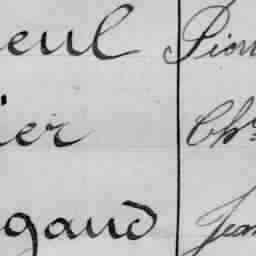 eul Pierr
ier Chs
gaud Jean